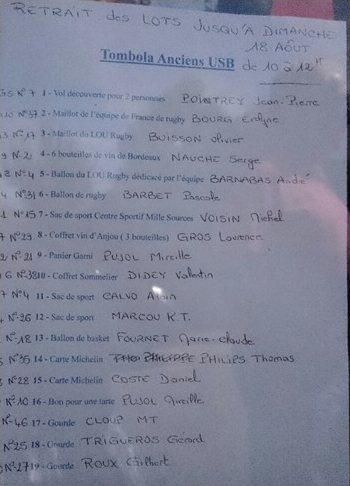 RETRAIT des LOTS JUSQU'À DIMANCHE
18 AOUT
Tombola Anciens USB de 10 à 12H
N° 7 1 - Vol découverte pour 2 personnes POINTREY Jean-Pierre
N° 37 2 - Maillot de l'équipe de France de rugby BOURG Evelyne
N° 17 3 - Maillot du LOU Rugby BUISSON Olivier
N° 2 4 - 6 bouteilles de vin de Bordeaux NAUCHE Serge
N° 4 5 - Ballon du LOU Rugby dédicacé par l'équipe BARNABAS André
N° 31 6 - Ballon de rugby BARBET Pascale
N° 15 7 - Sac de sport Centre Sportif Mille Sources VOISIN Michel
N° 29 8 - Coffret vin d'Anjou ( 3 bouteilles) GROS Laurence
N° 21 9 - Panier Garni PUJOL Mireille
N° 38 10 - Coffret Sommelier DIDEY Valentin
N° 4 11 - Sac de sport CALVO Alain
N° 26 12 - Sac de sport MARCOU K.T.
N° 18 13 - Ballon de basket FOURNET Marie-claude
N° 35 14 - Carte Michelin PHILIPS Thomas
N° 28 15 - Carte Michelin COSTE Daniel
N° 10 16 - Bon pour une tarte PUJOL Mireille
N° 46 17 - Gourde CLOUP MT
N° 25 18 - Gourde TRIGUEROS Gérard
N° 27 19 - Gourde ROUX Gilbert